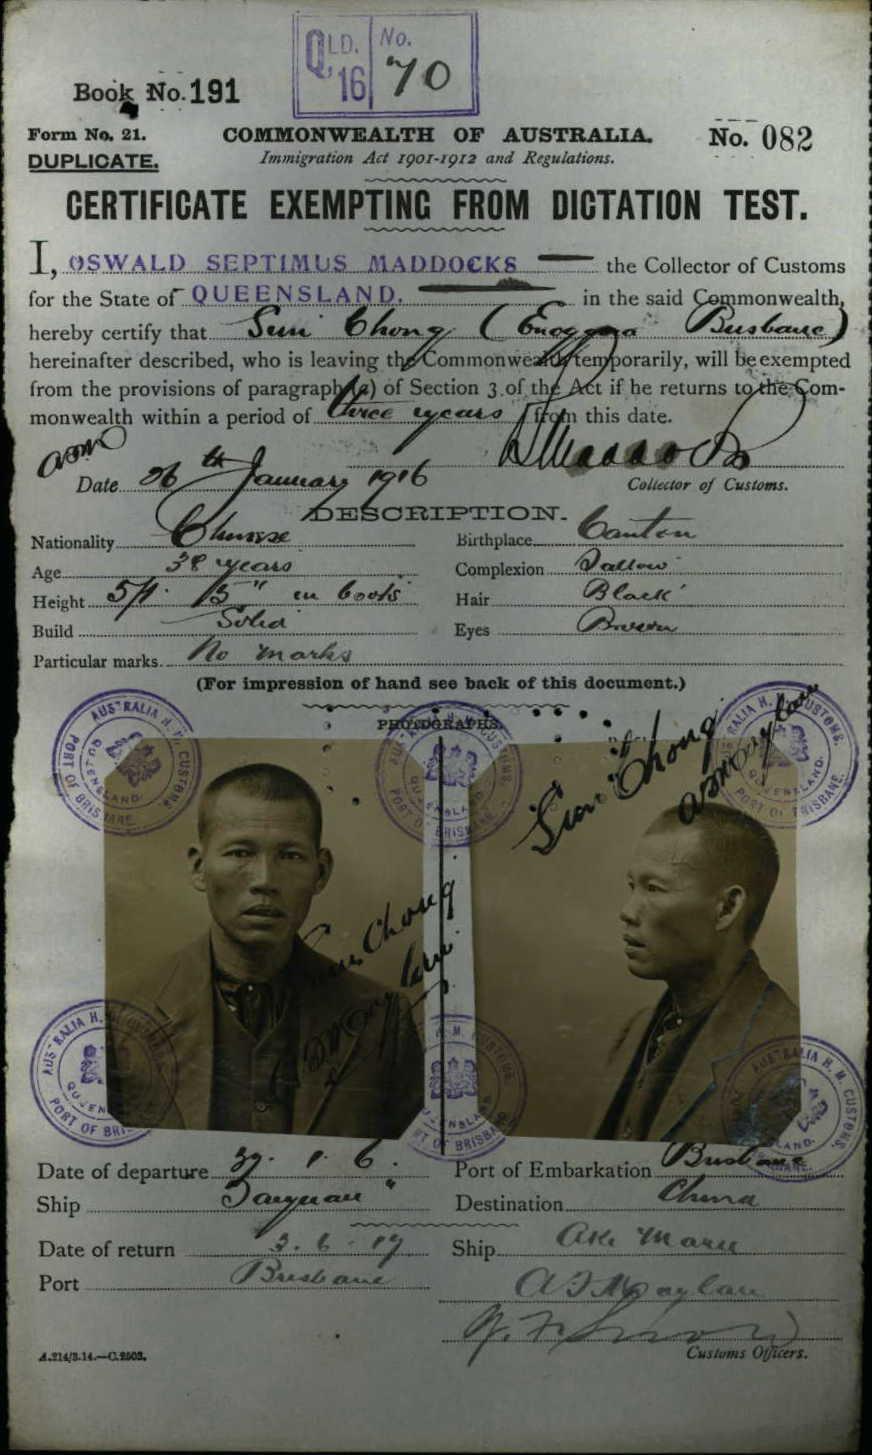 QLD. 16 No. 70
Book No. 191
Form No. 21. COMMONWEALTH OF AUSTRALIA. No. 082
DUPLICATE. Immigration Act 1901-1912 and Regulations.
CERTIFICATE EXEMPTING FROM DICTATION TEST.
I, OSWALD SEPTIMUS MADDOCKS the Collector of Customs
for the State of QUEENSLAND. in the said Commonwealth,
hereby certify that Sun Chong (Enoggera Brisbane)
hereinafter described, who is leaving the Commonwealth temporarily, will be exempted
from the provisions of paragraph (a) of Section 3 of the Act if he returns to the Com-
monwealth within a period of three years from this date.
Date 26th January 1916 Collector of Customs.
DESCRIPTION.
Nationality Chinese Birthplace Canton
Age 38 years Complexion Sallow
Height 5ft 5" in boots Hair Black
Build Solid Eyes Brown
Particular marks. No marks
(For impression of hand see back of this document.)
PHOTOGRAPHS.
AUSTRALIA H. M. CUSTOMS. QUEENSLAND. PORT OF BRISBANE.
Sun Chong
Sun Chong
Date of departure 1. 6. Port of Embarkation Brisbane
Ship Taiyuan Destination China
Date of return 3. 6. 17 Ship Aki Maru
Port Brisbane
Customs Officers.
A.214/3.14.—C.2503.